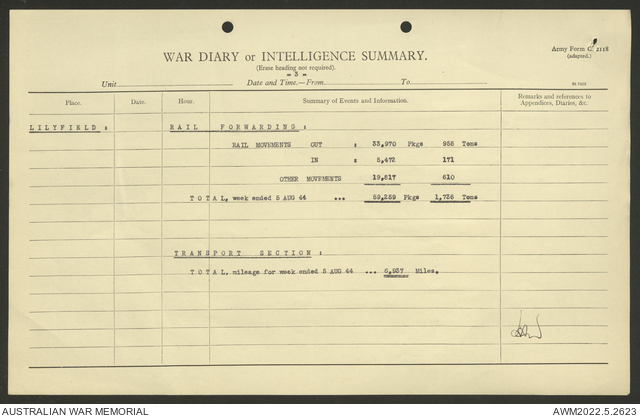 Army Form C. 2118
(adapted.)
WAR DIARY or INTELLIGENCE SUMMARY.
(Erase heading not required).
- 3 -
Unit Date and Time.—From To
Place. Date. Hour. Summary of Events and Information. Remarks and references to Appendices, Diaries, &c.
LILYFIELD : RAIL FORWARDING :
RAIL MOVEMENTS OUT : 33,970 Pkgs 955 Tons
IN : 5,472 171
OTHER MOVEMENTS 19,817 610
TOTAL, week ended 5 AUG 44 ... 59,259 Pkgs 1,736 Tons
TRANSPORT SECTION :
TOTAL, mileage for week ended 5 AUG 44 ... 6,937 Miles.
AUSTRALIAN WAR MEMORIAL AWM2022.5.2623